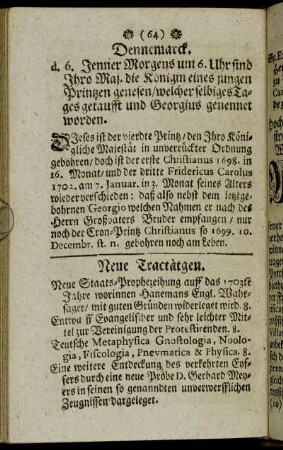 (64)
Dennemarck.
d. 6. Jenner Morgens um 6. Uhr sind
Ihro Maj. die Königin eines jungen
Printzen genesen/welcher selbiges Ta-
ges getaufft und Georgius genennet
worden.
DIeses ist der vierdte Printz/den Ihro Köni-
gliche Majestät in unverrückter Ordnung
gebohren/doch ist der erste Christianus 1698. in
16. Monat/und der dritte Fridericus Carolus
1702. am 7. Januar. in 3. Monat seines Alters
wieder verschieden: daß also nebst dem letztge-
bohrnen Georgio welchen Nahmen er nach des
Herrn Großvaters Bruder empfangen/nur
noch der Cron-Printz Christianus so 1699. 10.
Decembr. st. n. gebohren noch am Leben.
Neue Tractätgen.
Neue Staats-Prophezeihung auff das 1703te
Jahre worinnen Hanemans Engl. Wahr-
sager/mit guten Gründen widerleget wird. 8.
Entwuff Evangelischer und sehr leichter Mit-
tel zur Vereinigung der Protestirenden. 8.
Teutsche Metaphysica Gnostologia, Noolo-
gia, Fiscologia, Pnevmatica & Physica. 8.
Eine weitere Entdeckung des verkehrten Eyf-
fers durch eine neue Probe D. Gerhard Mey-
ers in seinen so genandten unverwerfflichen
Zeugnissen dargeleget.